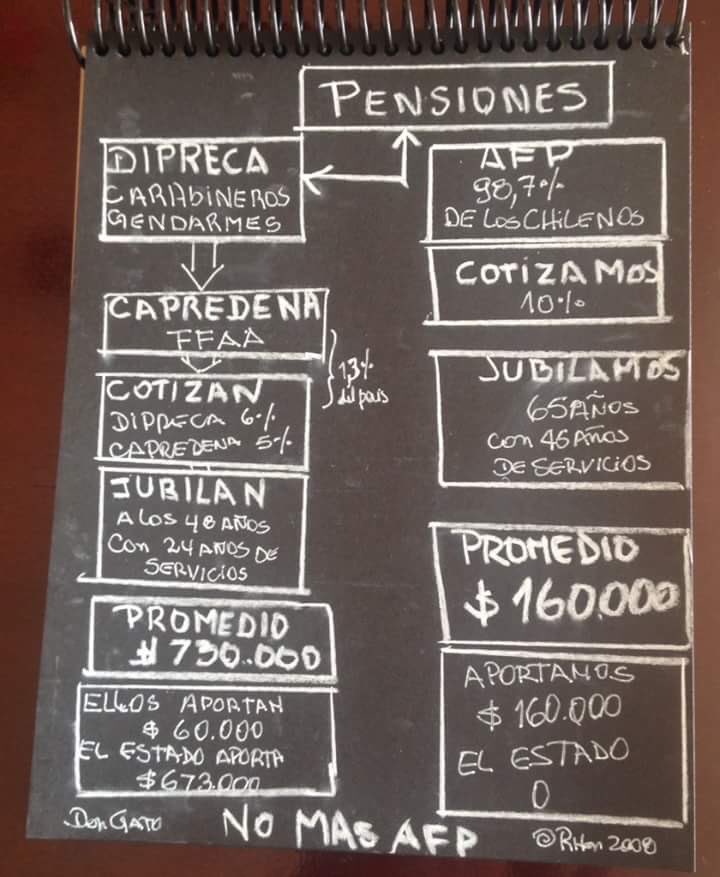 PENSIONES
DIPRECA
CARABINEROS
GENDARMES
CAPREDENA
FFAA
1,3%
del pais
COTIZAN
DIPRECA 6%
CAPREDENA 5%
JUBILAN
A LOS 48 AÑOS
CON 24 AÑOS DE
SERVICIOS
PROMEDIO
$ 730.000
ELLOS APORTAN
$ 60.000
EL ESTADO APORTA
$ 673.000
AFP
98,7%
DE LOS CHILENOS
COTIZAMOS
10%
JUBILAMOS
65 AÑOS
CON 45 AÑOS
DE SERVICIOS
PROMEDIO
$ 160.000
APORTAMOS
$ 160.000
EL ESTADO
0
Don GATO
NO MAS AFP